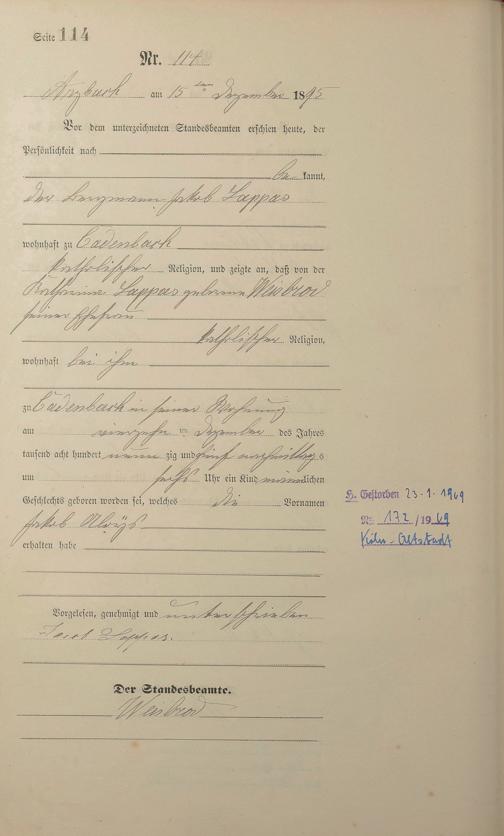 Seite 114
Nr. 114
Arzbach am 15ten Dezember 1895
Vor dem unterzeichneten Standesbeamten erschien heute, der
Persönlichkeit nach
be kannt,
der Bergmann Jakob Lappas
wohnhaft zu Cadenbach
katholischer Religion, und zeigte an, daß von der
Katharina Lappas geborene Weisbrod
seiner Ehefrau
katholischer Religion,
wohnhaft bei ihm
zu Cadenbach in seiner Wohnung
am vierzehn ten Dezember des Jahres
tausend acht hundert neun zig und fünf nachmittags
um sechs Uhr ein Kind männlichen
Geschlechts geboren worden sei, welches die Vornamen
Jakob Aloys
erhalten habe
Vorgelesen, genehmigt und unterschrieben
Jacob Lappas.
Der Standesbeamte.
Weisbrod
H. Gestorben 23-1-1969
Nr. 172/1969
Köln-Altstadt